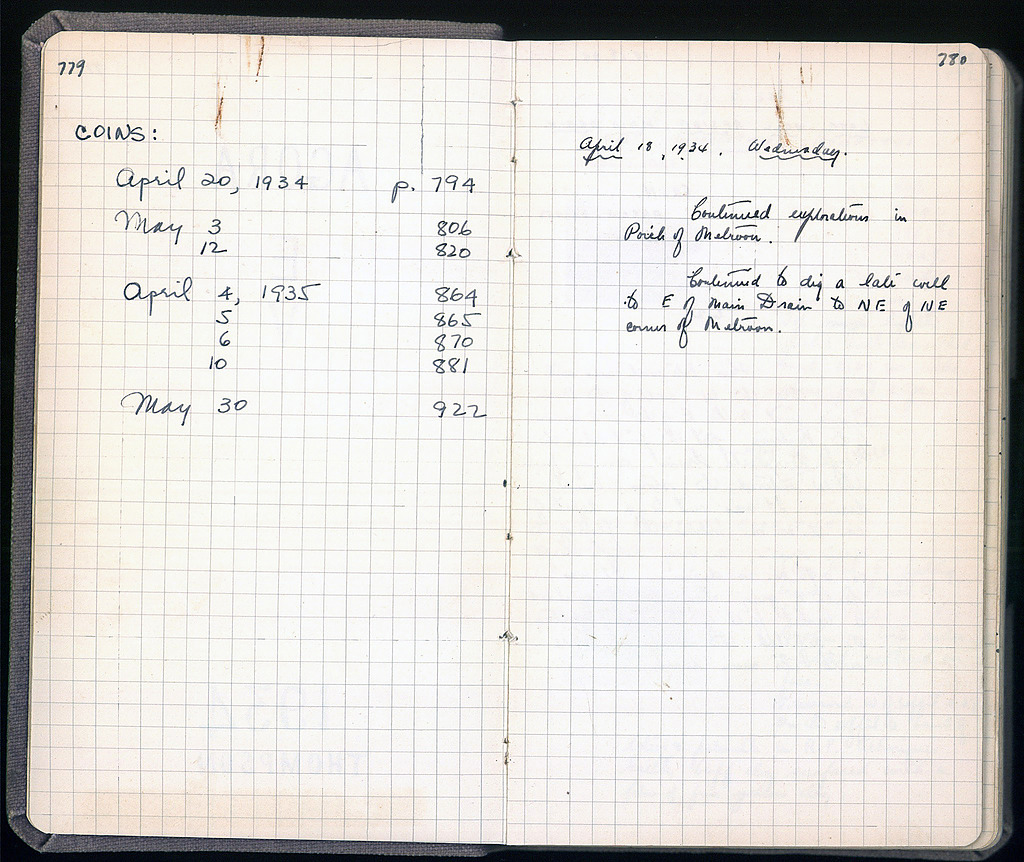 779
COINS:
April 20, 1934 p. 794
May 3 806
12 820
April 4, 1935 864
5 865
6 870
10 881
May 30 922
780
April 18, 1934. Wednesday.
Continued explorations in
Porch of Metroon.
Continued to dig a late well
to E of Main Drain to NE of NE
corner of Metroon.